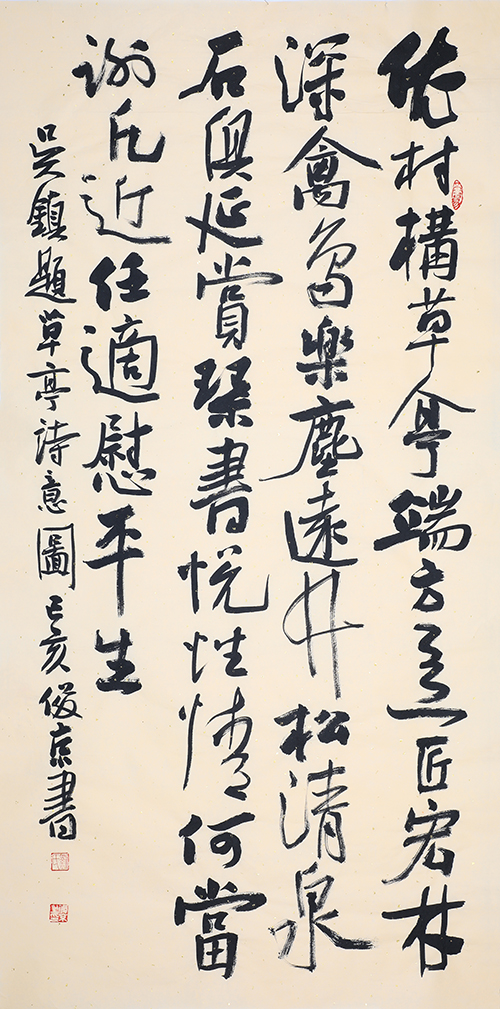 依村構草亭端方意匠宏林
深禽鳥樂塵遠竹松清泉
石延賞琴書悅性情何當
謝凡近任適慰平生
吳鎮題草亭詩意圖己亥俊京書